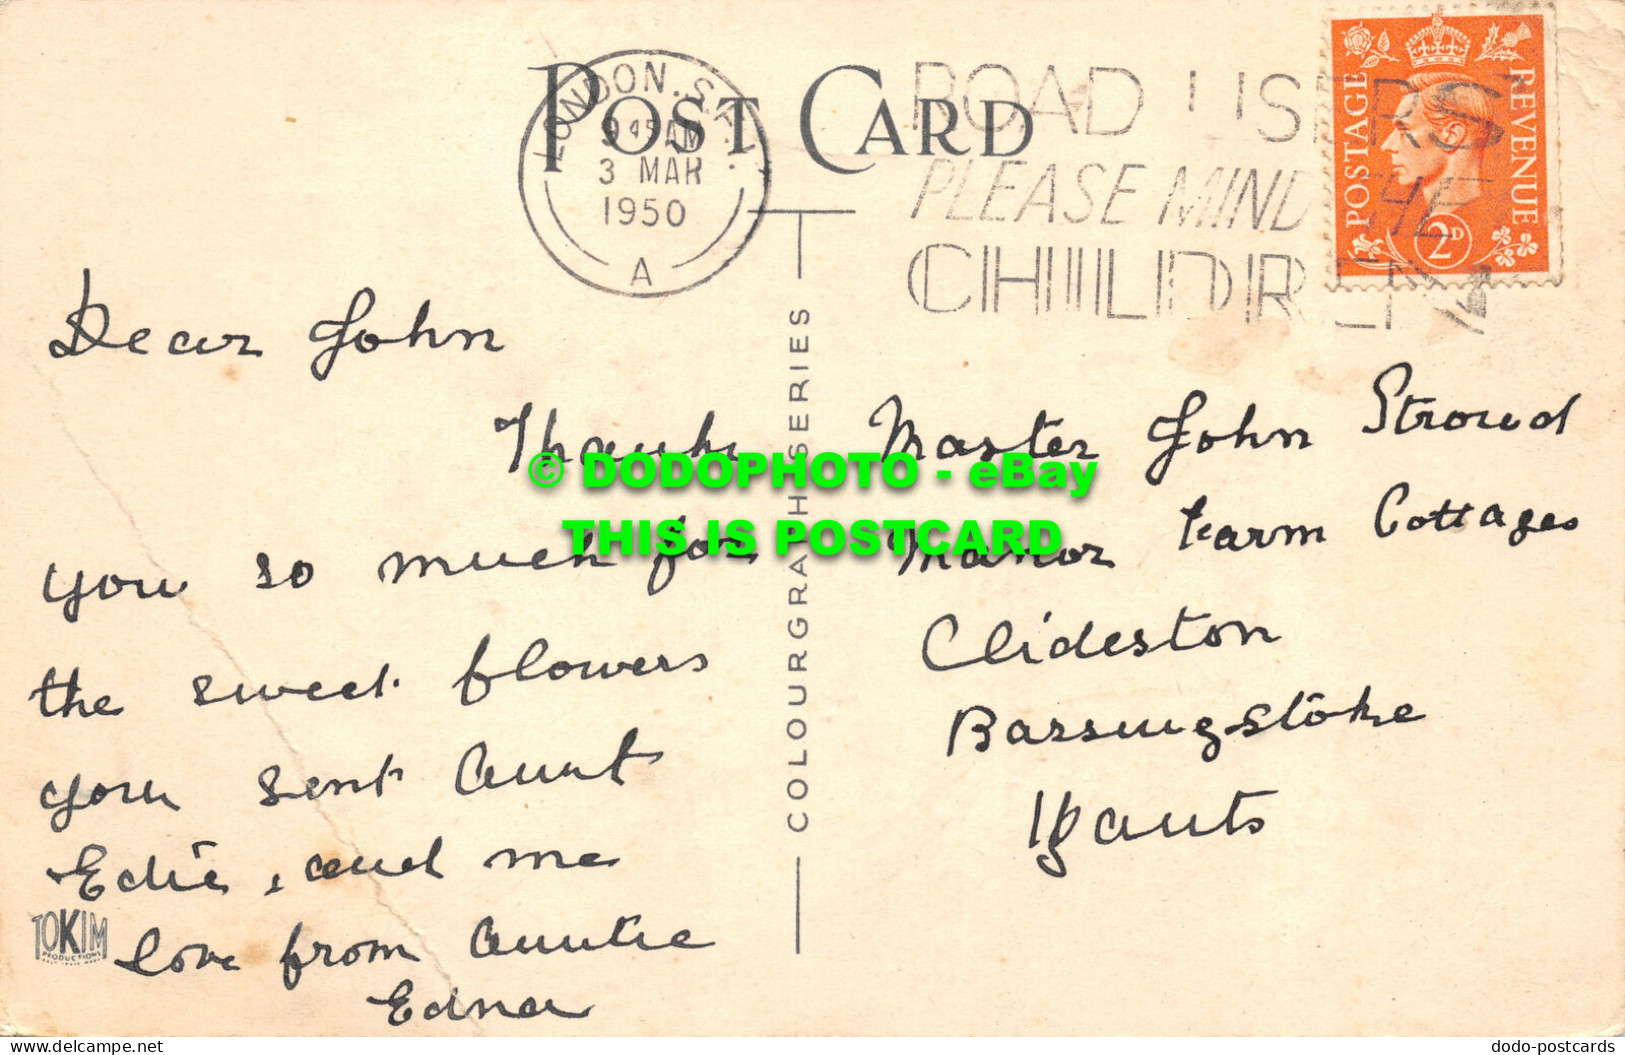 POST CARD
LONDON. S.
9 45 AM
3 MAR
1950
A
ROAD USERS
PLEASE MIND THE
CHILDREN
POSTAGE
REVENUE
2D
Dear John
Thank
you so much for
the sweet flowers
you sent Aunt
Edie, and me
love from Auntie
Edna
TOKIM
PRODUCTIONS
COLOURGRAPH SERIES
Master John Stroud
Manor Farm Cottages
Clideston
Bassingstoke
Hants
© DODOPHOTO - eBay
THIS IS POSTCARD
www.delcampe.net
dodo-postcards